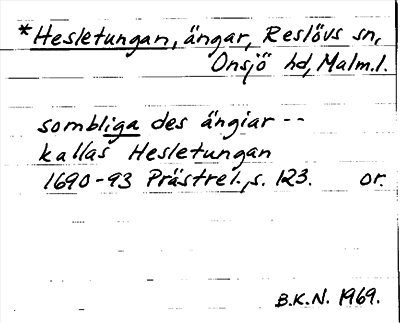 *Hesletungan, ängar, Reslövs sn,
Onsjö hd, Malm.l.
sombliga des ängiar --
kallas Hesletungan
1690-93 Prästrel., s. 123. or.
B.K.N. 1969.